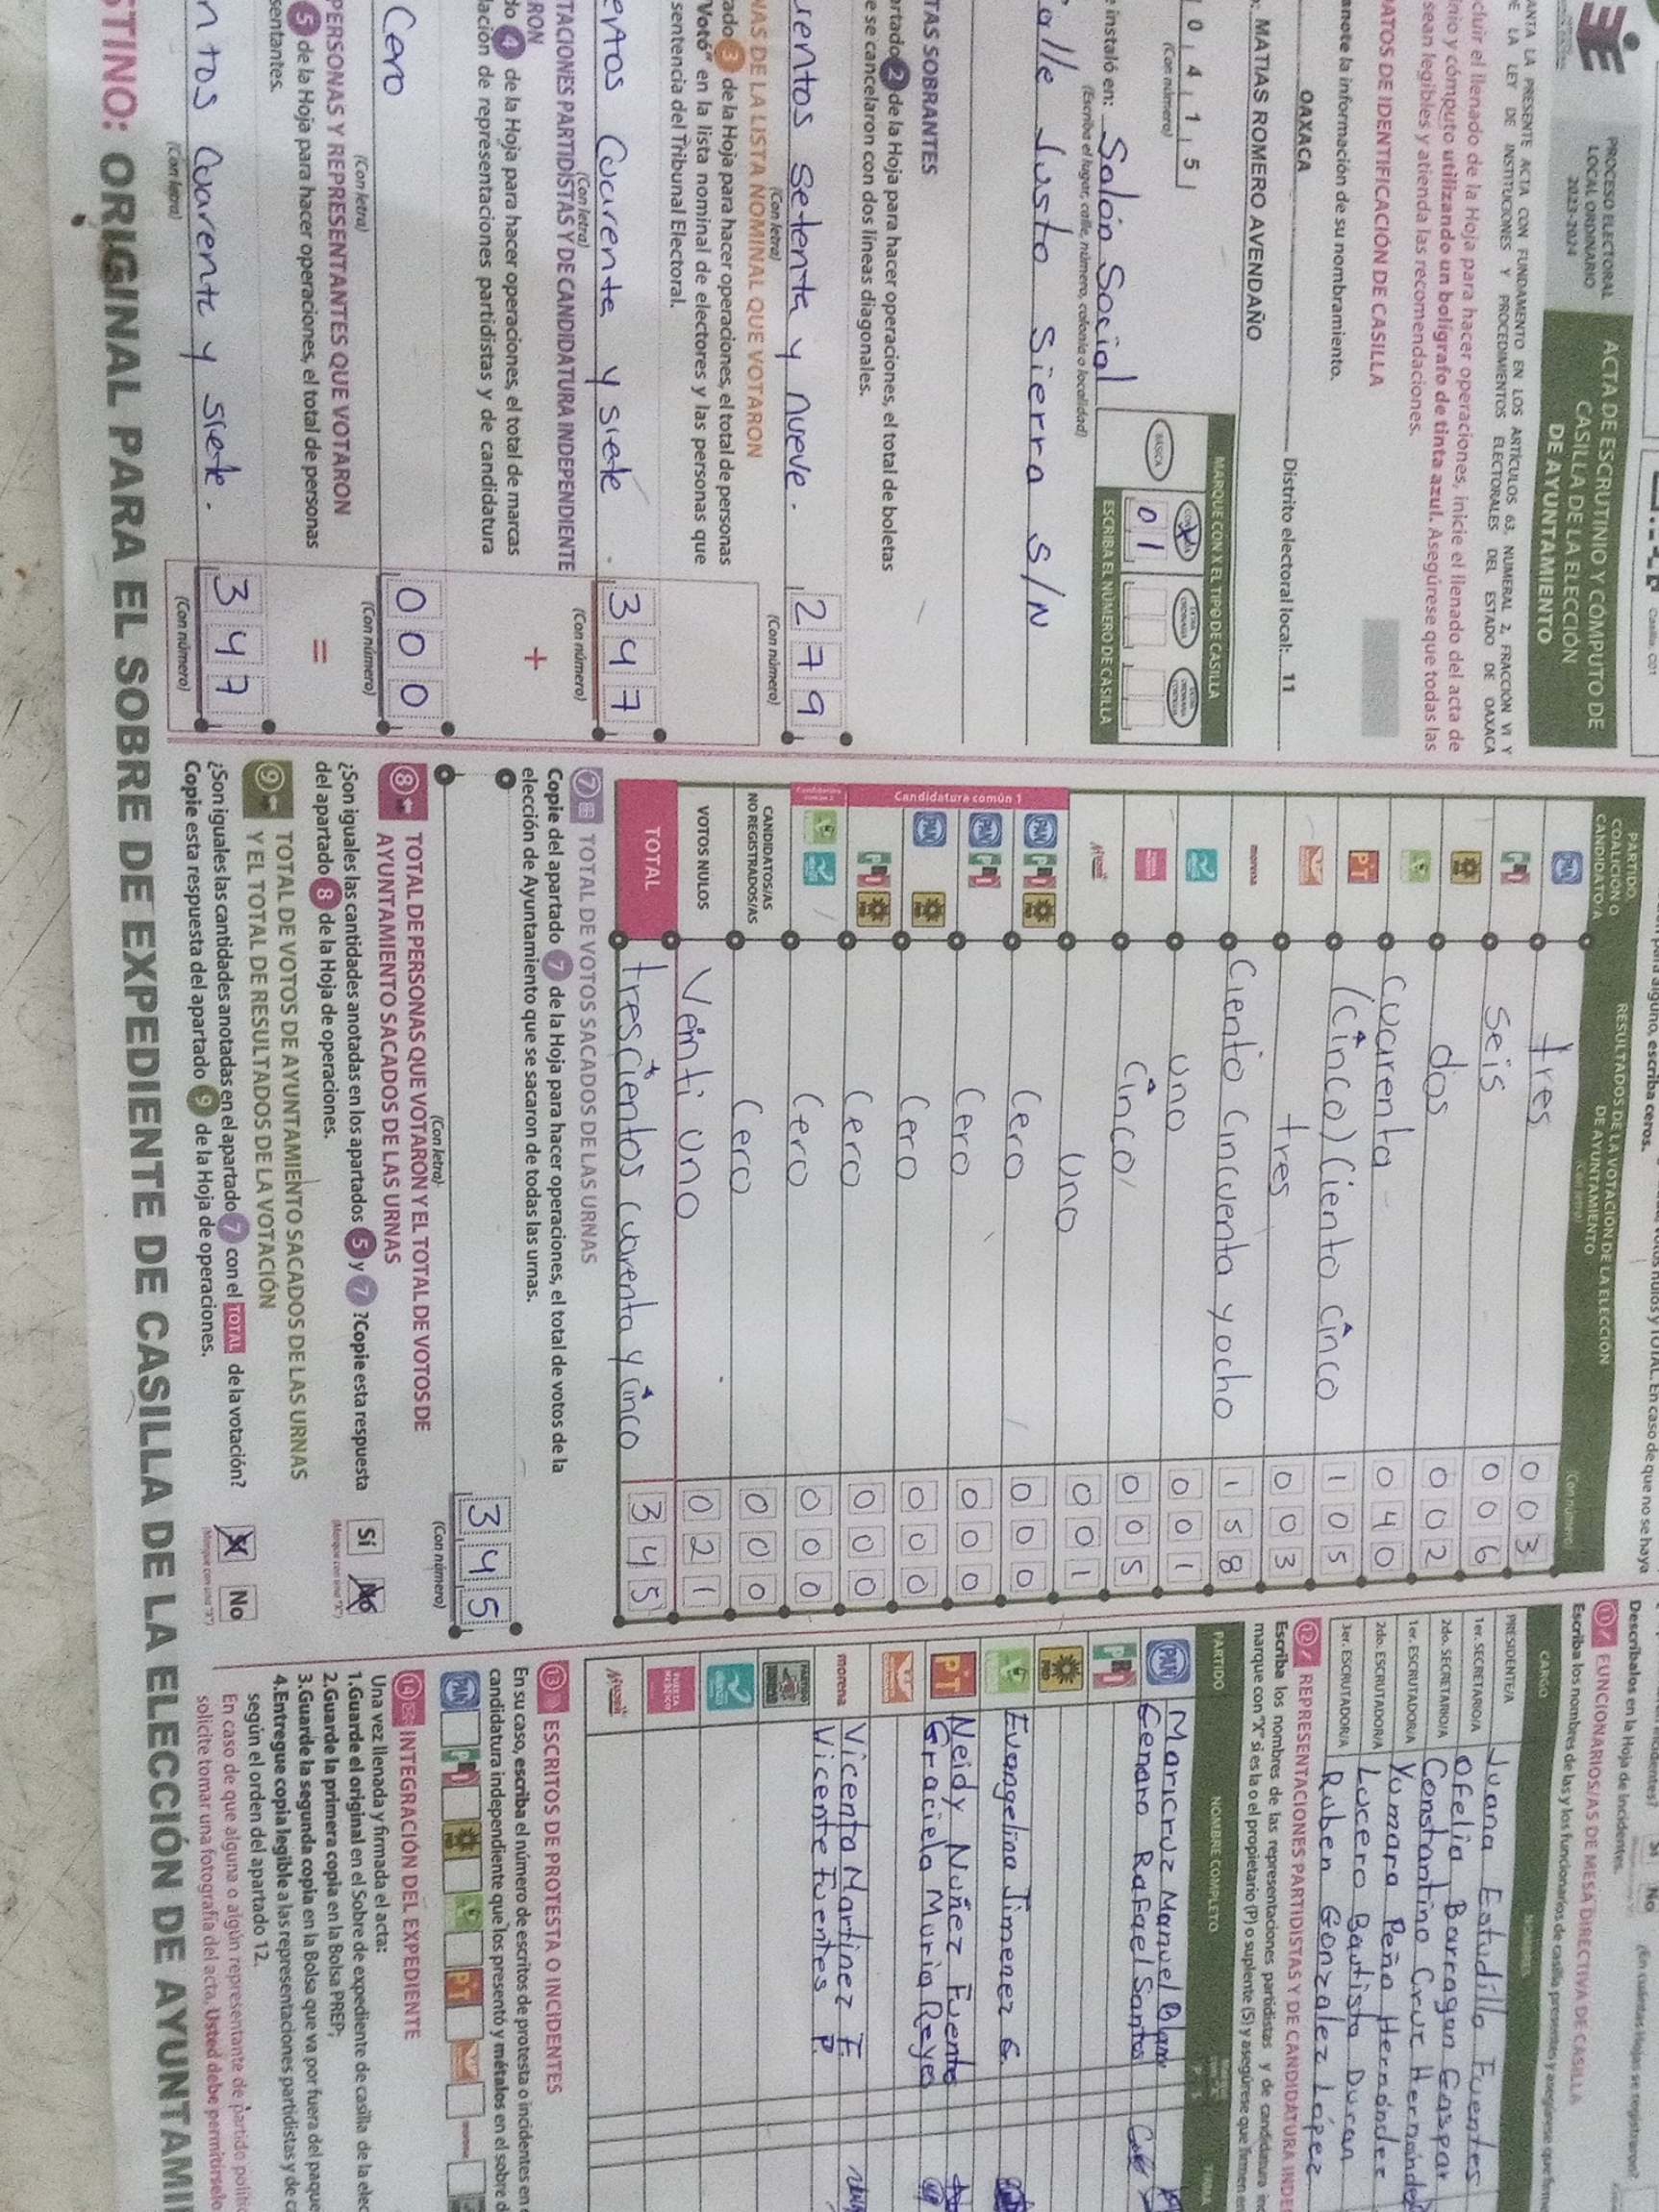 Casilla: C01
PROCESO ELECTORAL
LOCAL ORDINARIO
2023-2024
ACTA DE ESCRUTINIO Y CÓMPUTO DE
CASILLA DE LA ELECCIÓN
DE AYUNTAMIENTO
ANTA LA PRESENTE ACTA CON FUNDAMENTO EN LOS ARTÍCULOS 63, NUMERAL 2, FRACCIÓN VI Y
DE LA LEY DE INSTITUCIONES Y PROCEDIMIENTOS ELECTORALES DEL ESTADO DE OAXACA
cluir el llenado de la Hoja para hacer operaciones, inicie el llenado del acta de
inio y cómputo utilizando un bolígrafo de tinta azul. Asegúrese que todas las
sean legibles y atienda las recomendaciones.
DATOS DE IDENTIFICACIÓN DE CASILLA
anote la información de su nombramiento.
OAXACA Distrito electoral local: 11
: MATIAS ROMERO AVENDAÑO
MARQUE CON X EL TIPO DE CASILLA
BÁSICA
ESCRIBA EL NÚMERO DE CASILLA
0 1
0 4 1 5
(Con número)
e instaló en: Salón Social
(Escriba el lugar, calle, número, colonia o localidad)
alle Justo Sierra S/N
TAS SOBRANTES
artado 2 de la Hoja para hacer operaciones, el total de boletas
e se cancelaron con dos líneas diagonales.
ientos setenta y nueve. 2 7 9
(Con letra) (Con número)
NAS DE LA LISTA NOMINAL QUE VOTARON
ado 3 de la Hoja para hacer operaciones, el total de personas
"Votó" en la lista nominal de electores y las personas que
sentencia del Tribunal Electoral.
entos Cuarenta y siete. 3 4 7
(Con letra) (Con número)
TACIONES PARTIDISTAS Y DE CANDIDATURA INDEPENDIENTE
RON
+
do 4 de la Hoja para hacer operaciones, el total de marcas
lación de representaciones partidistas y de candidatura
Cero 0 0 0
(Con letra) (Con número)
PERSONAS Y REPRESENTANTES QUE VOTARON
=
5 de la Hoja para hacer operaciones, el total de personas
sentantes.
ntos Cuarenta y siete. 3 4 7
(Con letra) (Con número)
para alguno, escriba ceros.
votos nulos y TOTAL. En caso de que no se haya
PARTIDO,
COALICIÓN O
CANDIDATO/A
RESULTADOS DE LA VOTACIÓN DE LA ELECCIÓN
DE AYUNTAMIENTO
(Con letra) (Con número)
PAN tres 0 0 3
PRI seis 0 0 6
PRD dos 0 0 2
cuarenta 0 4 0
PT (Cinco) Ciento cinco 1 0 5
tres 0 0 3
morena Ciento cincuenta y ocho 1 5 8
uno 0 0 1
Cinco 0 0 5
uno 0 0 1
Candidatura común 1
PAN PRI PRD Cero 0 0 0
PAN PRI Cero 0 0 0
PAN PRD Cero 0 0 0
PRI PRD Cero 0 0 0
Cero 0 0 0
CANDIDATOS/AS
NO REGISTRADOS/AS Cero 0 0 0
VOTOS NULOS Veinti uno 0 2 1
TOTAL trescientos cuarenta y cinco 3 4 5
7 TOTAL DE VOTOS SACADOS DE LAS URNAS
Copie del apartado 7 de la Hoja para hacer operaciones, el total de votos de la
elección de Ayuntamiento que se sacaron de todas las urnas.
3 4 5
(Con letra) (Con número)
8 TOTAL DE PERSONAS QUE VOTARON Y EL TOTAL DE VOTOS DE
AYUNTAMIENTO SACADOS DE LAS URNAS
¿Son iguales las cantidades anotadas en los apartados 5 y 7 ?Copie esta respuesta
del apartado 8 de la Hoja de operaciones.
Sí No
(Marque con una "X")
9 TOTAL DE VOTOS DE AYUNTAMIENTO SACADOS DE LAS URNAS
Y EL TOTAL DE RESULTADOS DE LA VOTACIÓN
¿Son iguales las cantidades anotadas en el apartado 7 con el TOTAL de la votación?
Copie esta respuesta del apartado 9 de la Hoja de operaciones.
No
(Marque con una "X")
incidentes? Sí No (En cuántas Hojas se registraron?
Descríbalos en la Hoja de Incidentes.
11 FUNCIONARIOS/AS DE MESA DIRECTIVA DE CASILLA
Escriba los nombres de las y los funcionarios de casilla presentes y asegúrese que firm
CARGO NOMBRES
PRESIDENTE/A Juana Estudillo Fuentes
1er. SECRETARIO/A Ofelia Barragan Gaspar
2do. SECRETARIO/A Constantino Cruz Hernández
1er. ESCRUTADOR/A Yumara Peña Hernández
2do. ESCRUTADOR/A Lucero Bautista Duran
3er. ESCRUTADOR/A Ruben González López
12 REPRESENTACIONES PARTIDISTAS Y DE CANDIDATURA INDE
Escriba los nombres de las representaciones partidistas y de candidatura in
marque con "X" si es la o el propietario (P) o suplente (S) y asegúrese que firmen e
PARTIDO NOMBRE COMPLETO FIRMA
PAN Maricruz Manuel
Genaro Rafael Santos
PRI
PRD
Evangelina Jimenez G.
PT Neidy Nuñez Fuentes
Graciela Muria Reyes
morena Vicenta Martinez F
Vicente Fuentes P.
FUERZA MÉXICO
13 ESCRITOS DE PROTESTA O INCIDENTES
En su caso, escriba el número de escritos de protesta o incidentes en
candidatura independiente que los presentó y métalos en el sobre d
PAN PRI PRD PT morena
14 INTEGRACIÓN DEL EXPEDIENTE
Una vez llenada y firmada el acta:
1.Guarde el original en el Sobre de expediente de casilla de la elec
2.Guarde la primera copia en la Bolsa PREP;
3.Guarde la segunda copia en la Bolsa que va por fuera del paque
4.Entregue copia legible a las representaciones partidistas y de ca
según el orden del apartado 12.
En caso de que alguna o algún representante de partido polític
solicite tomar una fotografía del acta, Usted debe permitírselo
STINO: ORIGINAL PARA EL SOBRE DE EXPEDIENTE DE CASILLA DE LA ELECCIÓN DE AYUNTAMI